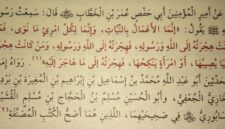 عَنْ أَمِيرِ الْمُؤْمِنِينَ أَبِي حَفْصٍ عُمَرَ بْنِ الْخَطَّابِ ﵁ قَالَ: سَمِعْتُ رَسُو
يَقُولُ: «إِنَّمَا الْأَعْمَالُ بِالنِّيَّاتِ، وَإِنَّمَا لِكُلِّ امْرِئٍ مَا نَوَى، فَمَ
هِجْرَتُهُ إِلَى اللَّهِ وَرَسُولِهِ، فَهِجْرَتُهُ إِلَى اللَّهِ وَرَسُولِهِ، وَمَنْ كَانَتْ هِجْرَ
يُصِيبُهَا، أَوِ امْرَأَةٍ يَنْكِحُهَا، فَهِجْرَتُهُ إِلَى مَا هَاجَرَ إِلَيْهِ»(١)، رَوَاهُ إِ
حَدِّثِينَ أَبُو عَبْدِ اللَّهِ مُحَمَّدُ بْنُ إِسْمَاعِيلَ بْنِ إِبْرَاهِيمَ بْنِ الْمُغِيرَةِ بْنِ بَرْدِ
الْجُعْفِيُّ، وَأَبُو الْحُسَيْنِ مُسْلِمُ بْنُ الْحَجَّاجِ بْنِ مُسْلِمٍ الْقُشَيْرِيُّ
فِي صَحِيحَيْهِمَا، اللَّذَيْنِ هُمَا أَصَحُّ الْكُتُبِ الْمُصَنَّفَةِ(٢)